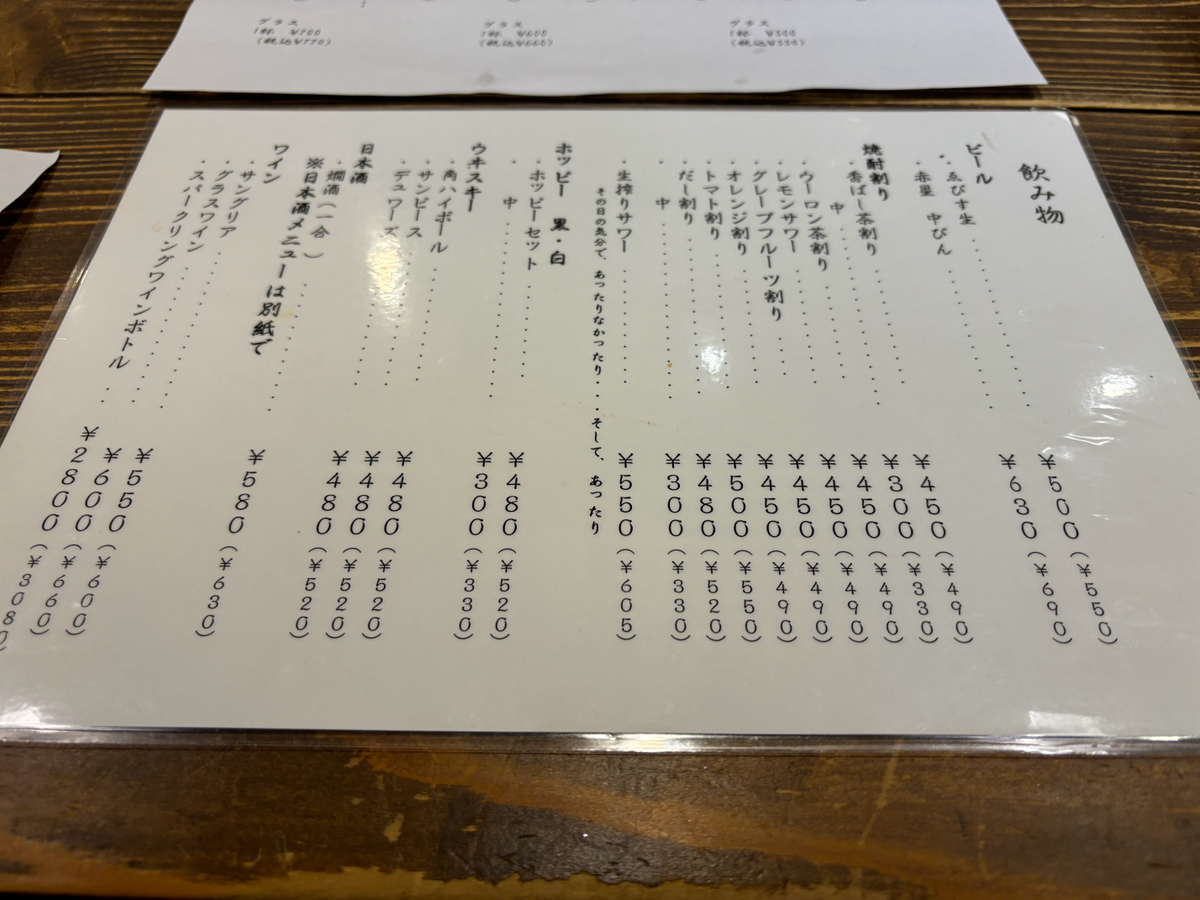 グラス
1杯 ¥700
(税込¥770)
グラス
1杯 ¥600
(税込¥660)
グラス
1杯
飲み物
ビール
・ゑびす生 ¥500(¥550)
・赤星 中びん ¥630(¥690)
焼酎割り
・香ばし茶割り ¥450(¥490)
・ 中 ¥300(¥330)
・ウーロン茶割り ¥450(¥490)
・レモンサワー ¥450(¥490)
・グレープフルーツ割り ¥450(¥490)
・オレンジ割り ¥450(¥490)
・トマト割り ¥500(¥550)
・だし割り ¥480(¥520)
・ 中 ¥300(¥330)
・生搾りサワー ¥550(¥605)
その日の気分で、あったりなかったり・・・そして、あったり
ホッピー 黒・白
・ホッピーセット ¥480(¥520)
・ 中 ¥300(¥330)
ウヰスキー
・角ハイボール ¥480(¥520)
・サンピース ¥480(¥520)
・デュワーズ ¥480(¥520)
日本酒
・燗酒(一合) ¥580(¥630)
※日本酒メニューは別紙で
ワイン
・サングリア ¥550(¥600)
・グラスワイン ¥600(¥660)
・スパークリングワインボトル ¥2800(¥3080)